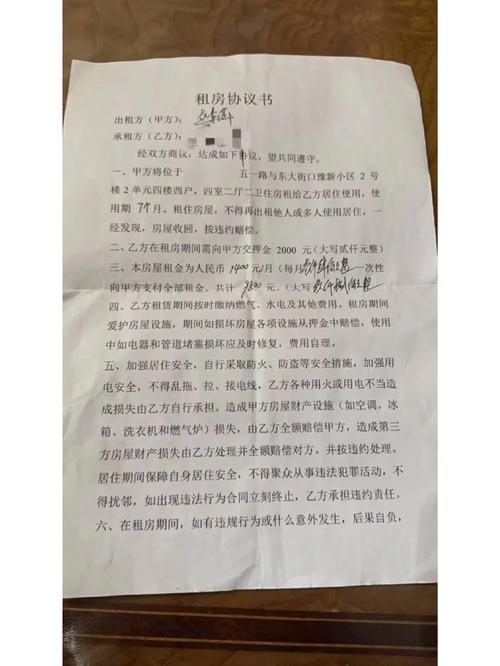 租房协议书
出租方（甲方）：
承租方（乙方）：
经双方商议，达成如下协议，望共同遵守。
一、甲方将位于 五一路与东大街口豫新小区 2 号
楼 2 单元四楼西户，四室二厅二卫住房租给乙方居住使用，使
用期 7个月。租住房屋，不得再出租他人或多人使用居住，一
经发现，房屋收回，按违约赔偿。
二、乙方在租房期间需向甲方交押金 2000 元（大写贰仟元整）
三、本房屋租金为人民币 1400 元/月（每月壹仟肆佰元整一次性
向甲方支付全部租金。共计 9800 元。（大写玖仟捌佰元整
四、乙方租赁期间按时缴纳燃气、水电及其他费用。租房期间
爱护房屋设施，期间如损坏房屋各项设施从押金中赔偿，使用
中如电器和管道堵塞损坏应及时修复，费用自理。
五、加强居住安全，自行采取防火、防盗等安全措施，加强用
电安全，不得乱拖、拉、接电线，乙方各种用火或用电不当造
成损失由乙方自行承担。造成甲方房屋财产设施（如空调。冰
箱、洗衣机和燃气炉）损失，由乙方全额赔偿甲方，造成第三
方房屋财产损失由乙方处理并全额赔偿对方。并按违约处理。
居住期间保障自身居住安全，不得聚众从事违法犯罪活动，不
得扰邻，如出现违法行为合同立刻终止，乙方承担违约责任。
六、在租房期间，如有违规行为或什么意外发生，后果自负，